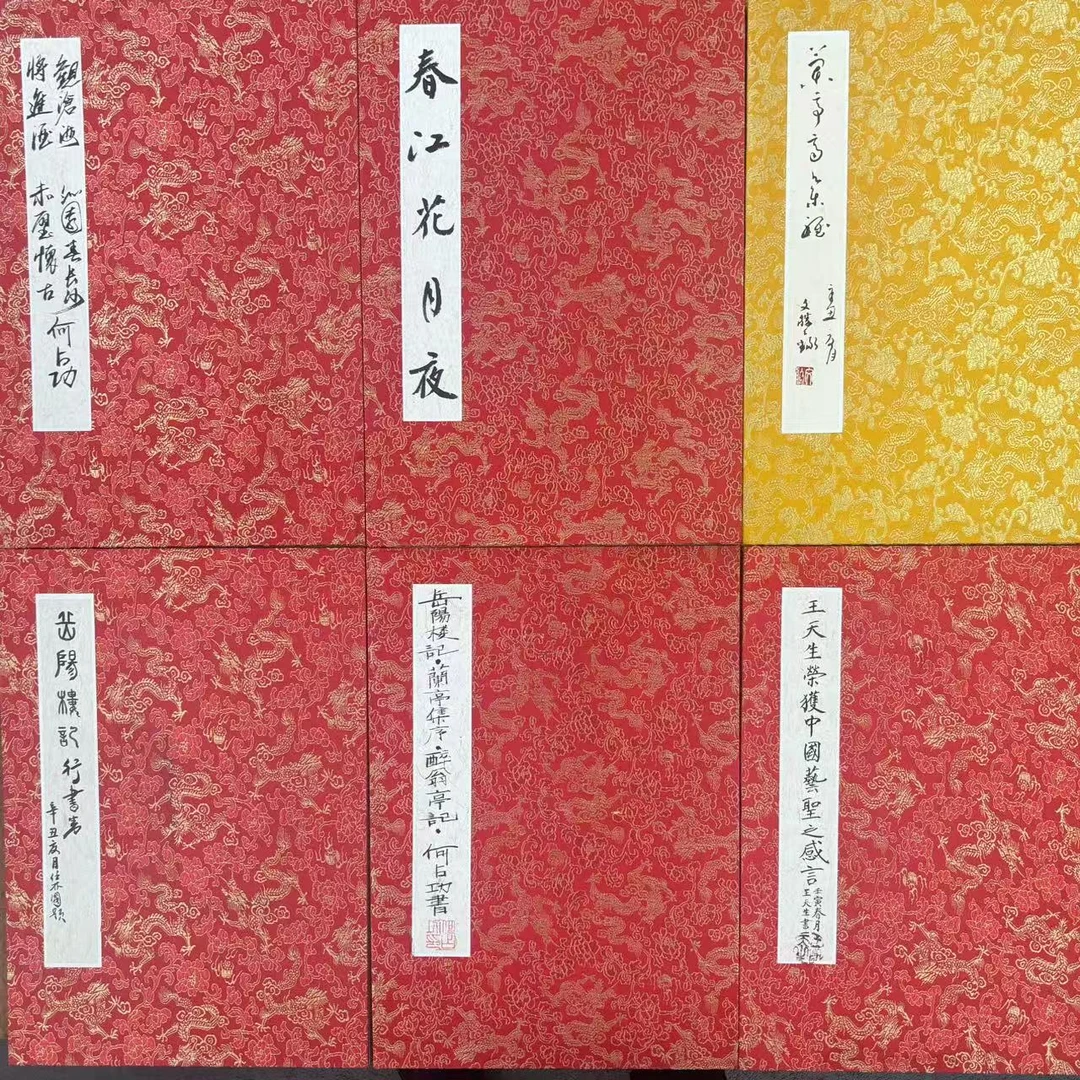 觀滄海 沁園春長沙
將進酒 赤壁懷古
何占功
春江花月夜
岳陽樓記行書
辛丑亥月
岳陽楼記·蘭亭集序·醉翁亭記·何占功書
王天生榮獲中國藝聖之感言
壬寅春月
王天生書